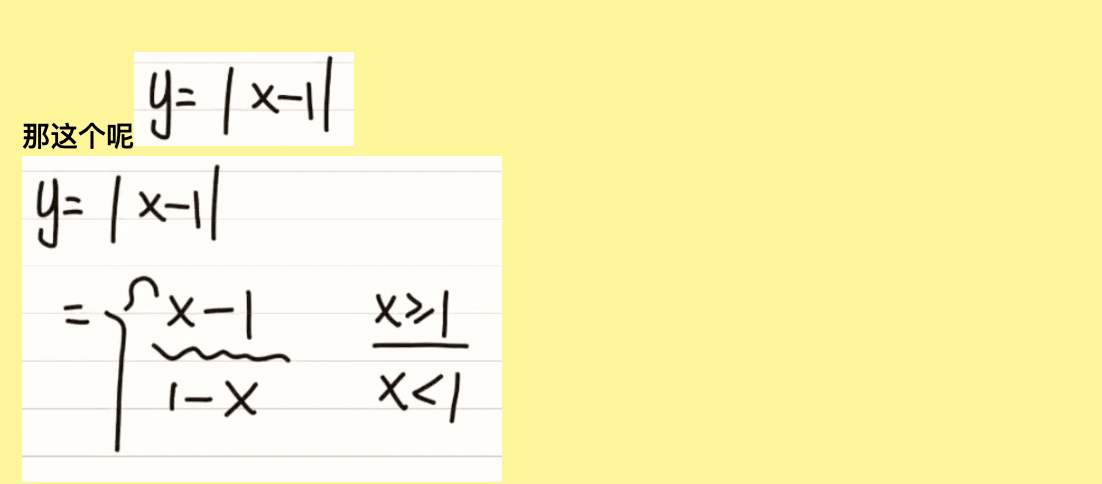 那这个呢 y=|x-1|
y=|x-1|
={x-1 x≥1
1-x x<1